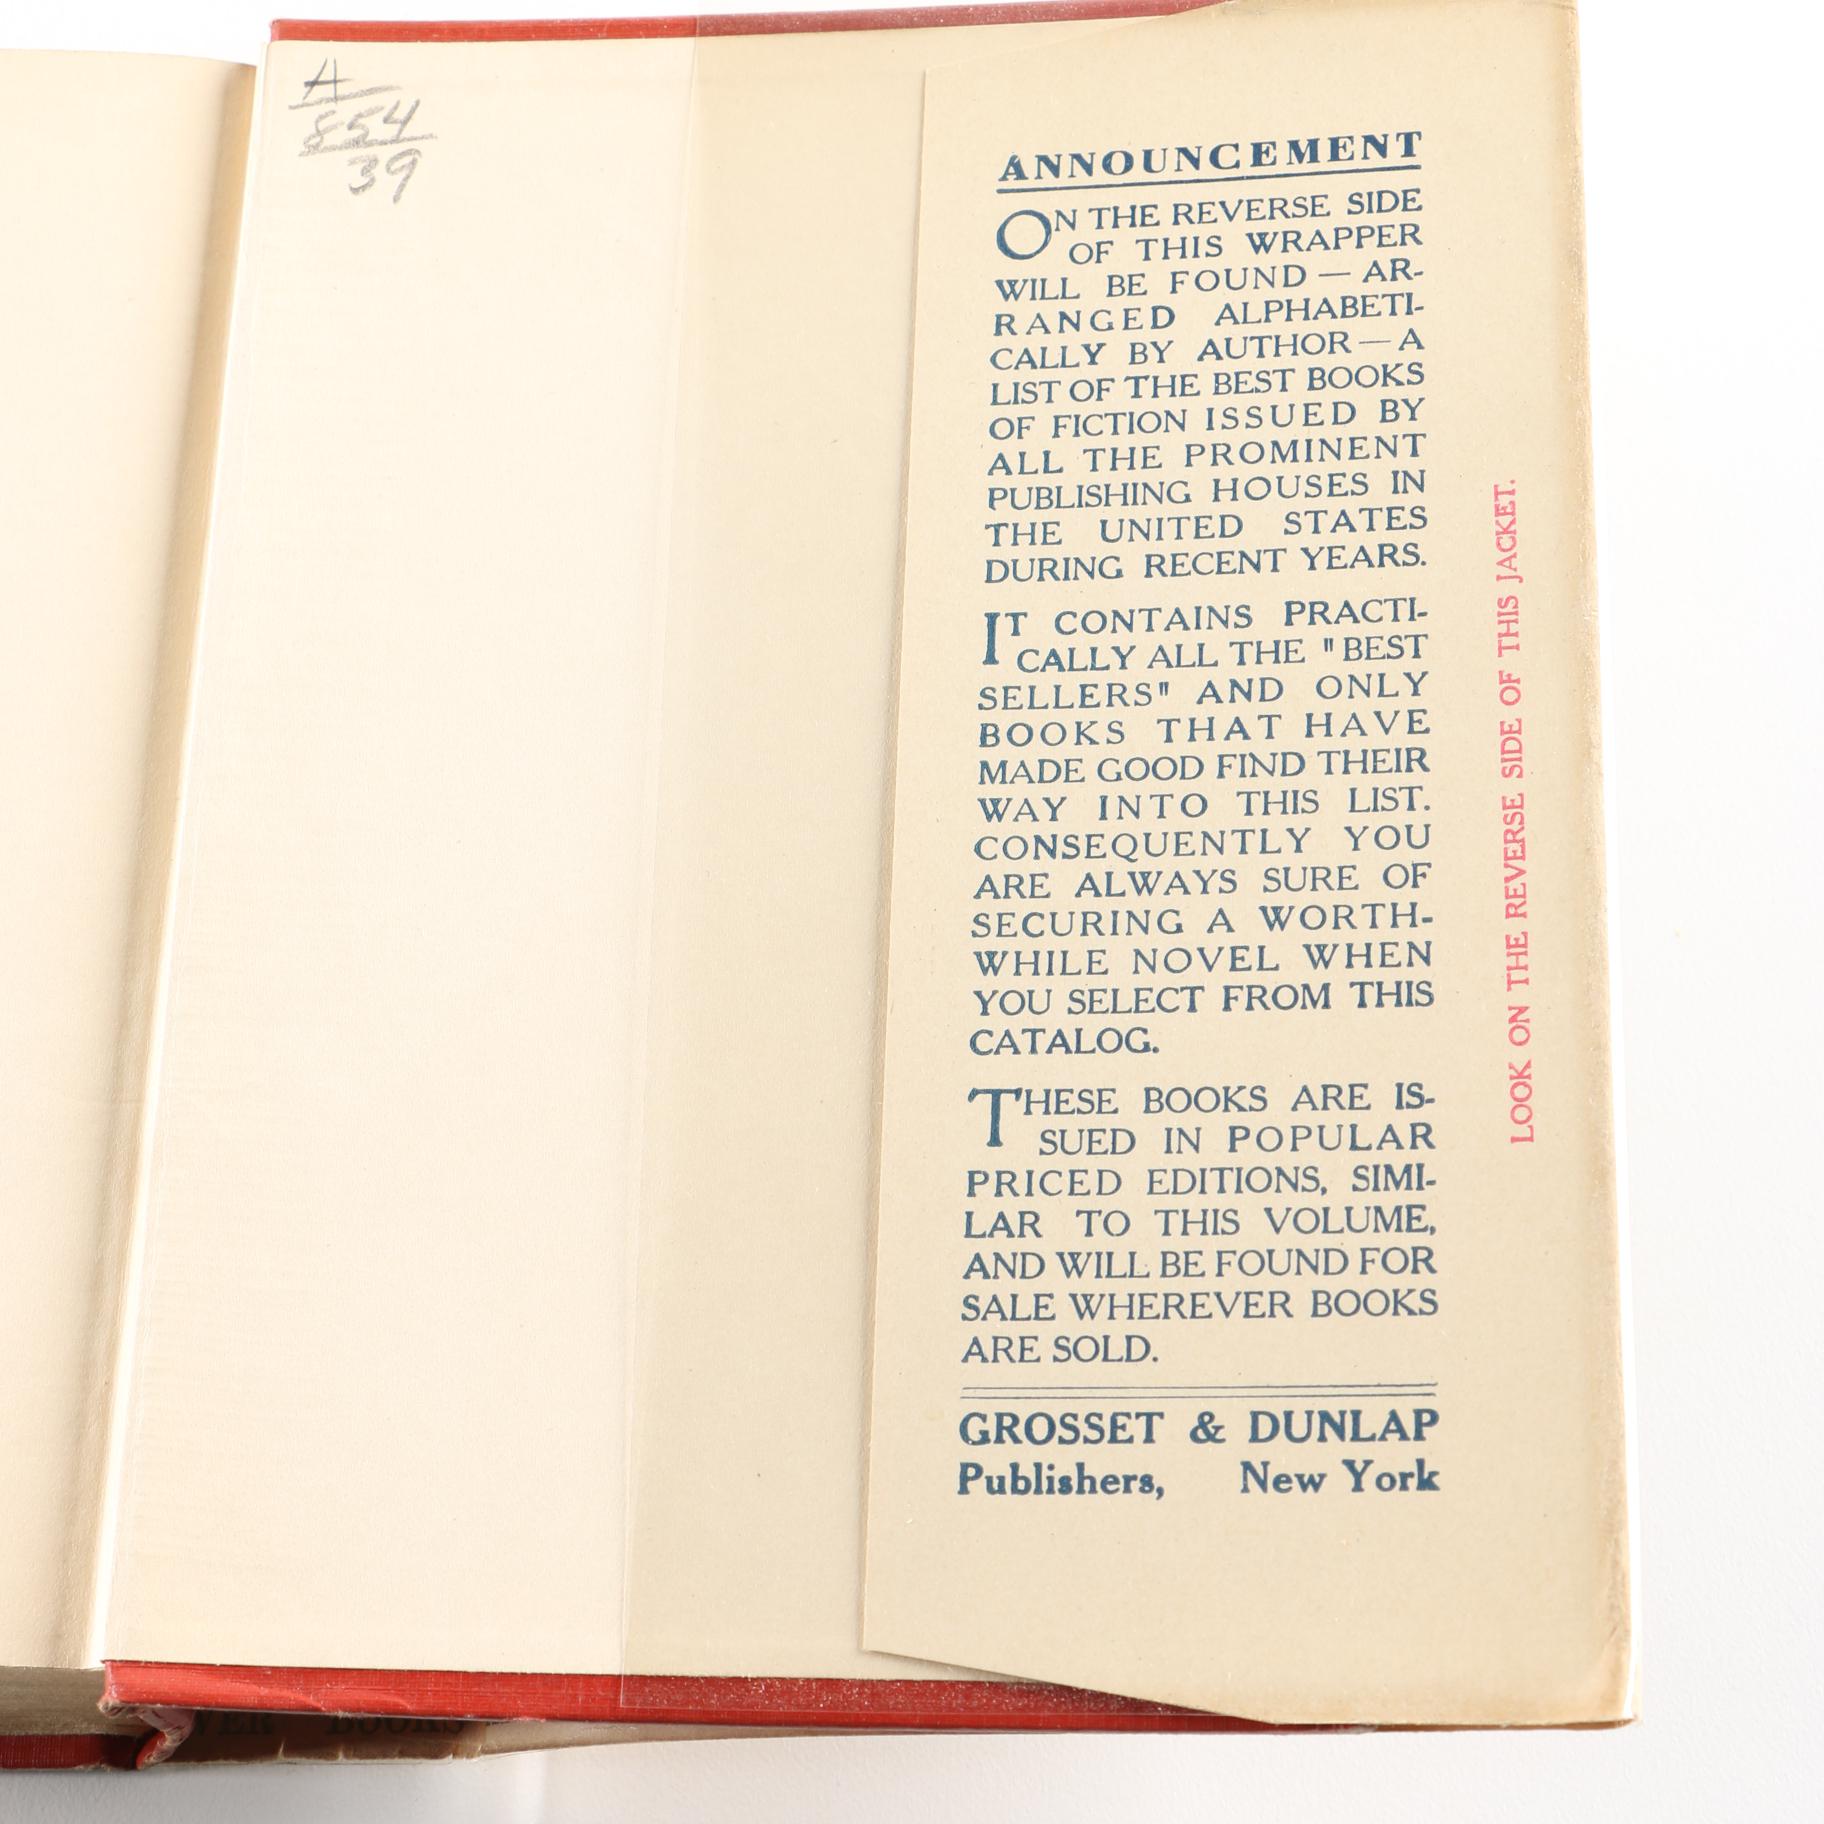 A
854
39
ANNOUNCEMENT
ON THE REVERSE SIDE
OF THIS WRAPPER
WILL BE FOUND — AR-
RANGED ALPHABETI-
CALLY BY AUTHOR — A
LIST OF THE BEST BOOKS
OF FICTION ISSUED BY
ALL THE PROMINENT
PUBLISHING HOUSES IN
THE UNITED STATES
DURING RECENT YEARS.
IT CONTAINS PRACTI-
CALLY ALL THE "BEST
SELLERS" AND ONLY
BOOKS THAT HAVE
MADE GOOD FIND THEIR
WAY INTO THIS LIST.
CONSEQUENTLY YOU
ARE ALWAYS SURE OF
SECURING A WORTH-
WHILE NOVEL WHEN
YOU SELECT FROM THIS
CATALOG.
THESE BOOKS ARE IS-
SUED IN POPULAR
PRICED EDITIONS, SIMI-
LAR TO THIS VOLUME,
AND WILL BE FOUND FOR
SALE WHEREVER BOOKS
ARE SOLD.
GROSSET & DUNLAP
Publishers, New York
LOOK ON THE REVERSE SIDE OF THIS JACKET.
BOOKS